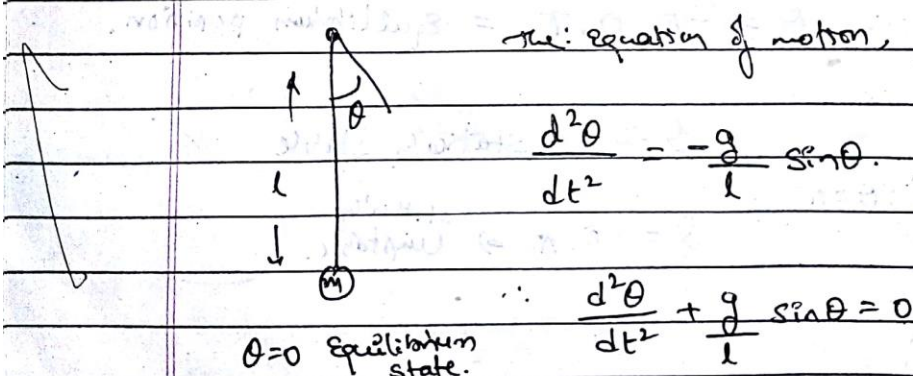 The: equation of motion,
θ
d²θ/dt² = -g/l sinθ.
l
m
∴ d²θ/dt² + g/l sinθ = 0
θ=0 Equilibrium
state.